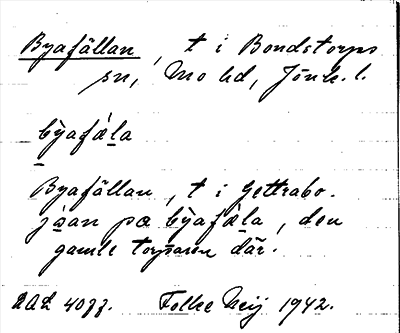 Byafällan, t i Bondstorps
sn, Mo hd, Jönk. l.
bỳafǽla
Byafällan, t i Gettrabo.
jåan pæ bỳafǽla, den
gamle torparen där.
ULÅ 4077. Folke Meij 1942.